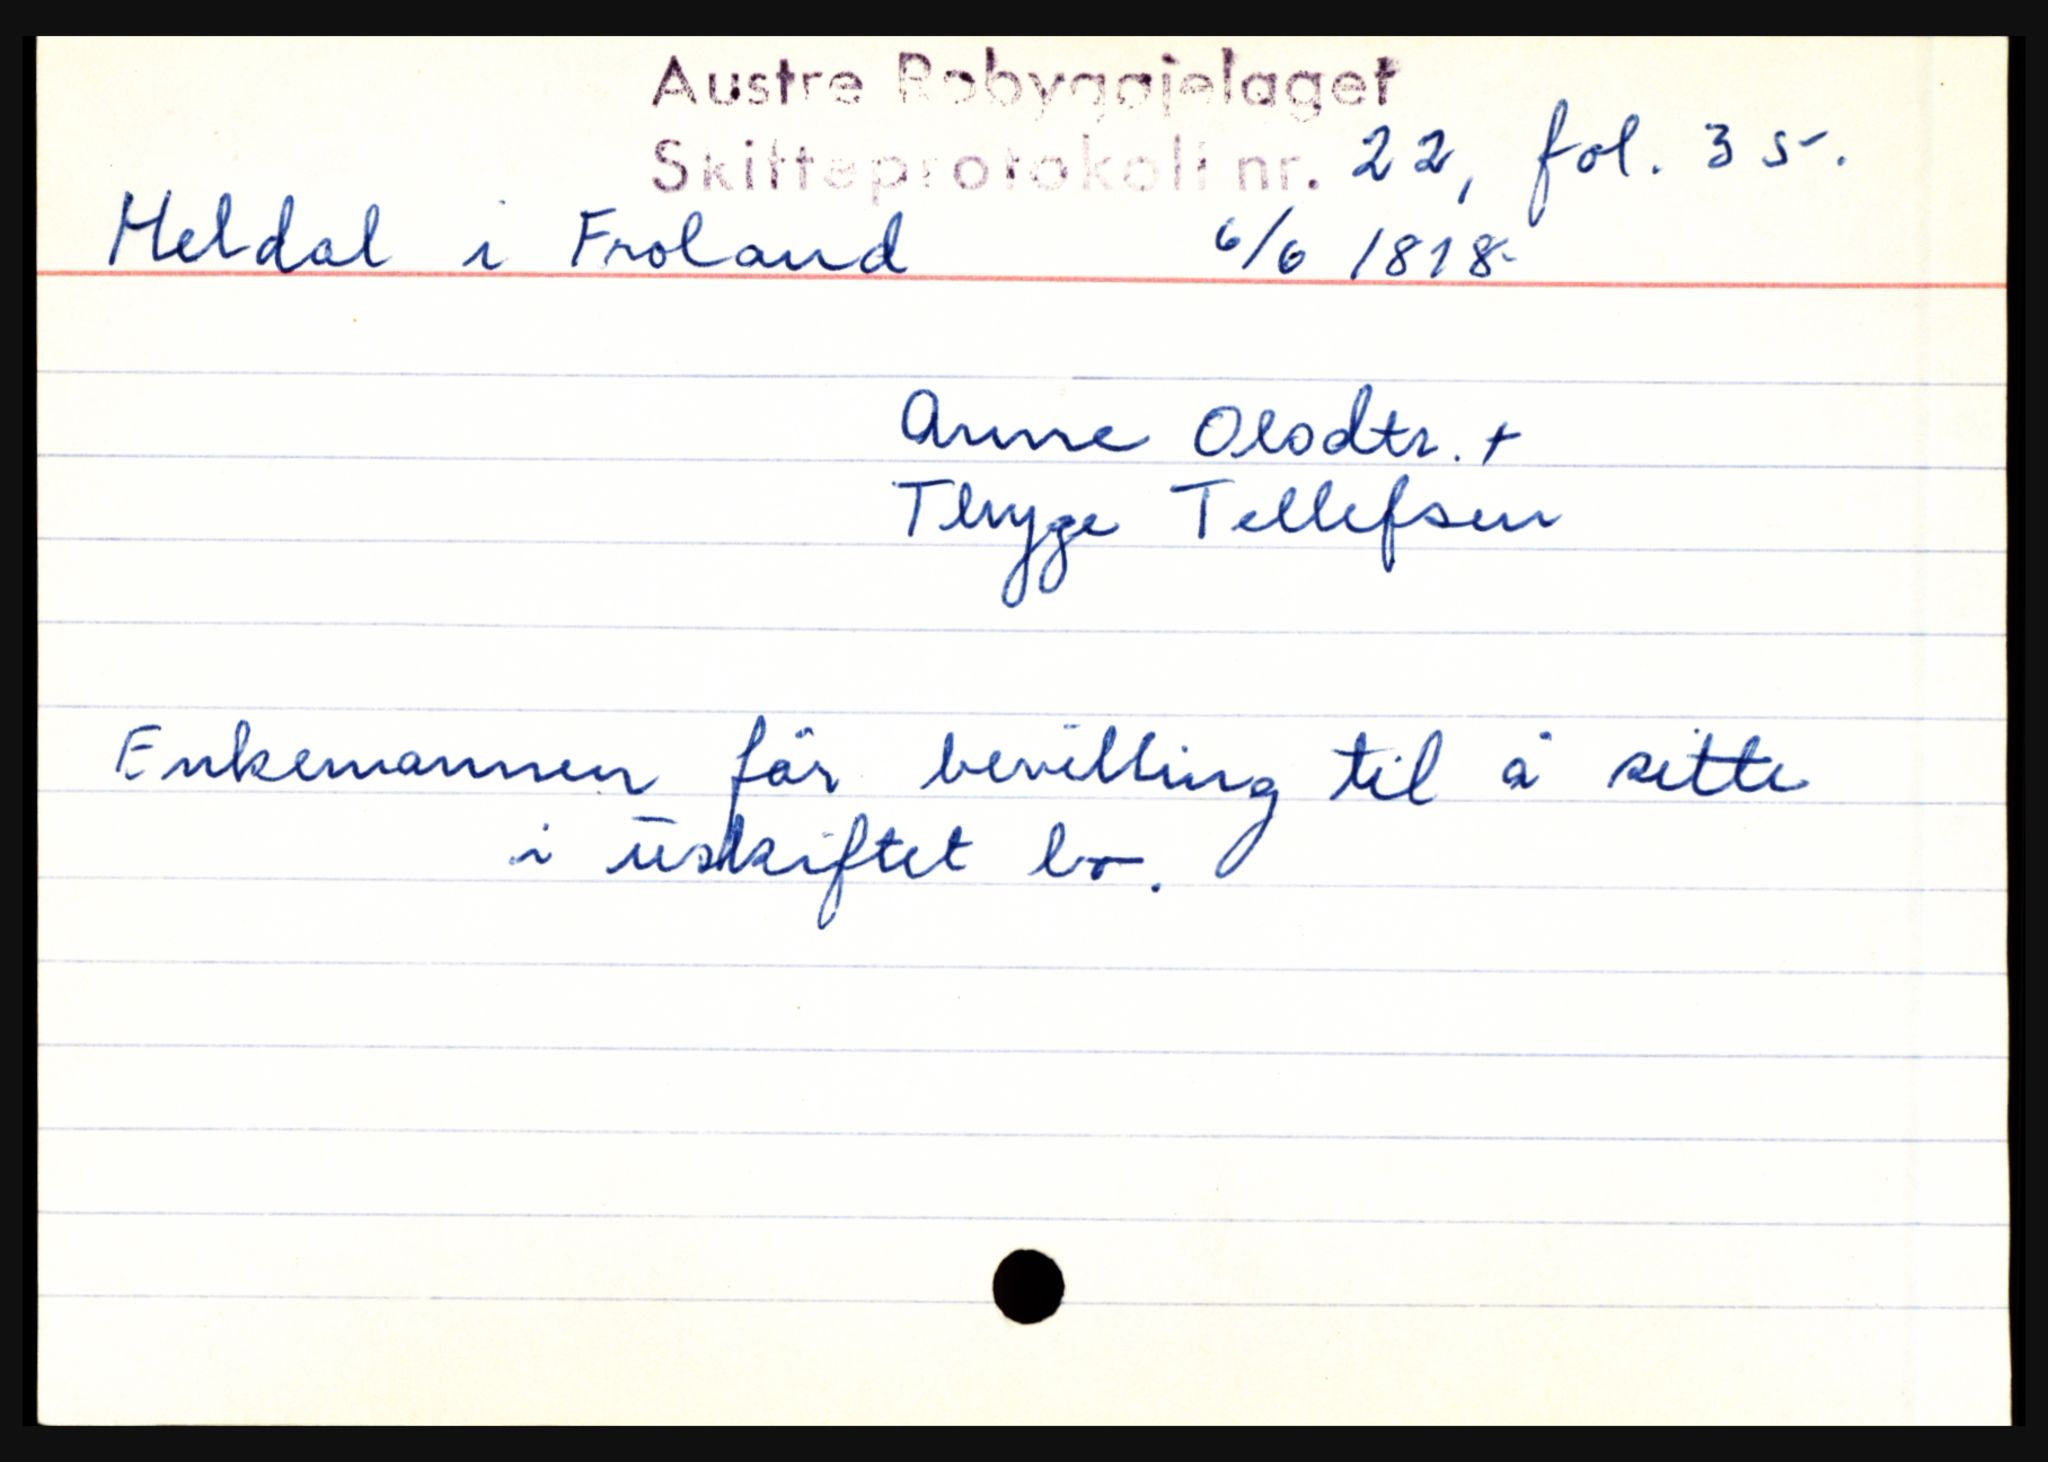 Austre Råbyggjelaget
Skifteprotokoll nr. 22, fol. 35.
Heldal i Froland 6/6 1818
Anne Olsdtr. +
Thryge Tellefsen
Enkemannen får bevilling til å sitte
i uskiftet bo.